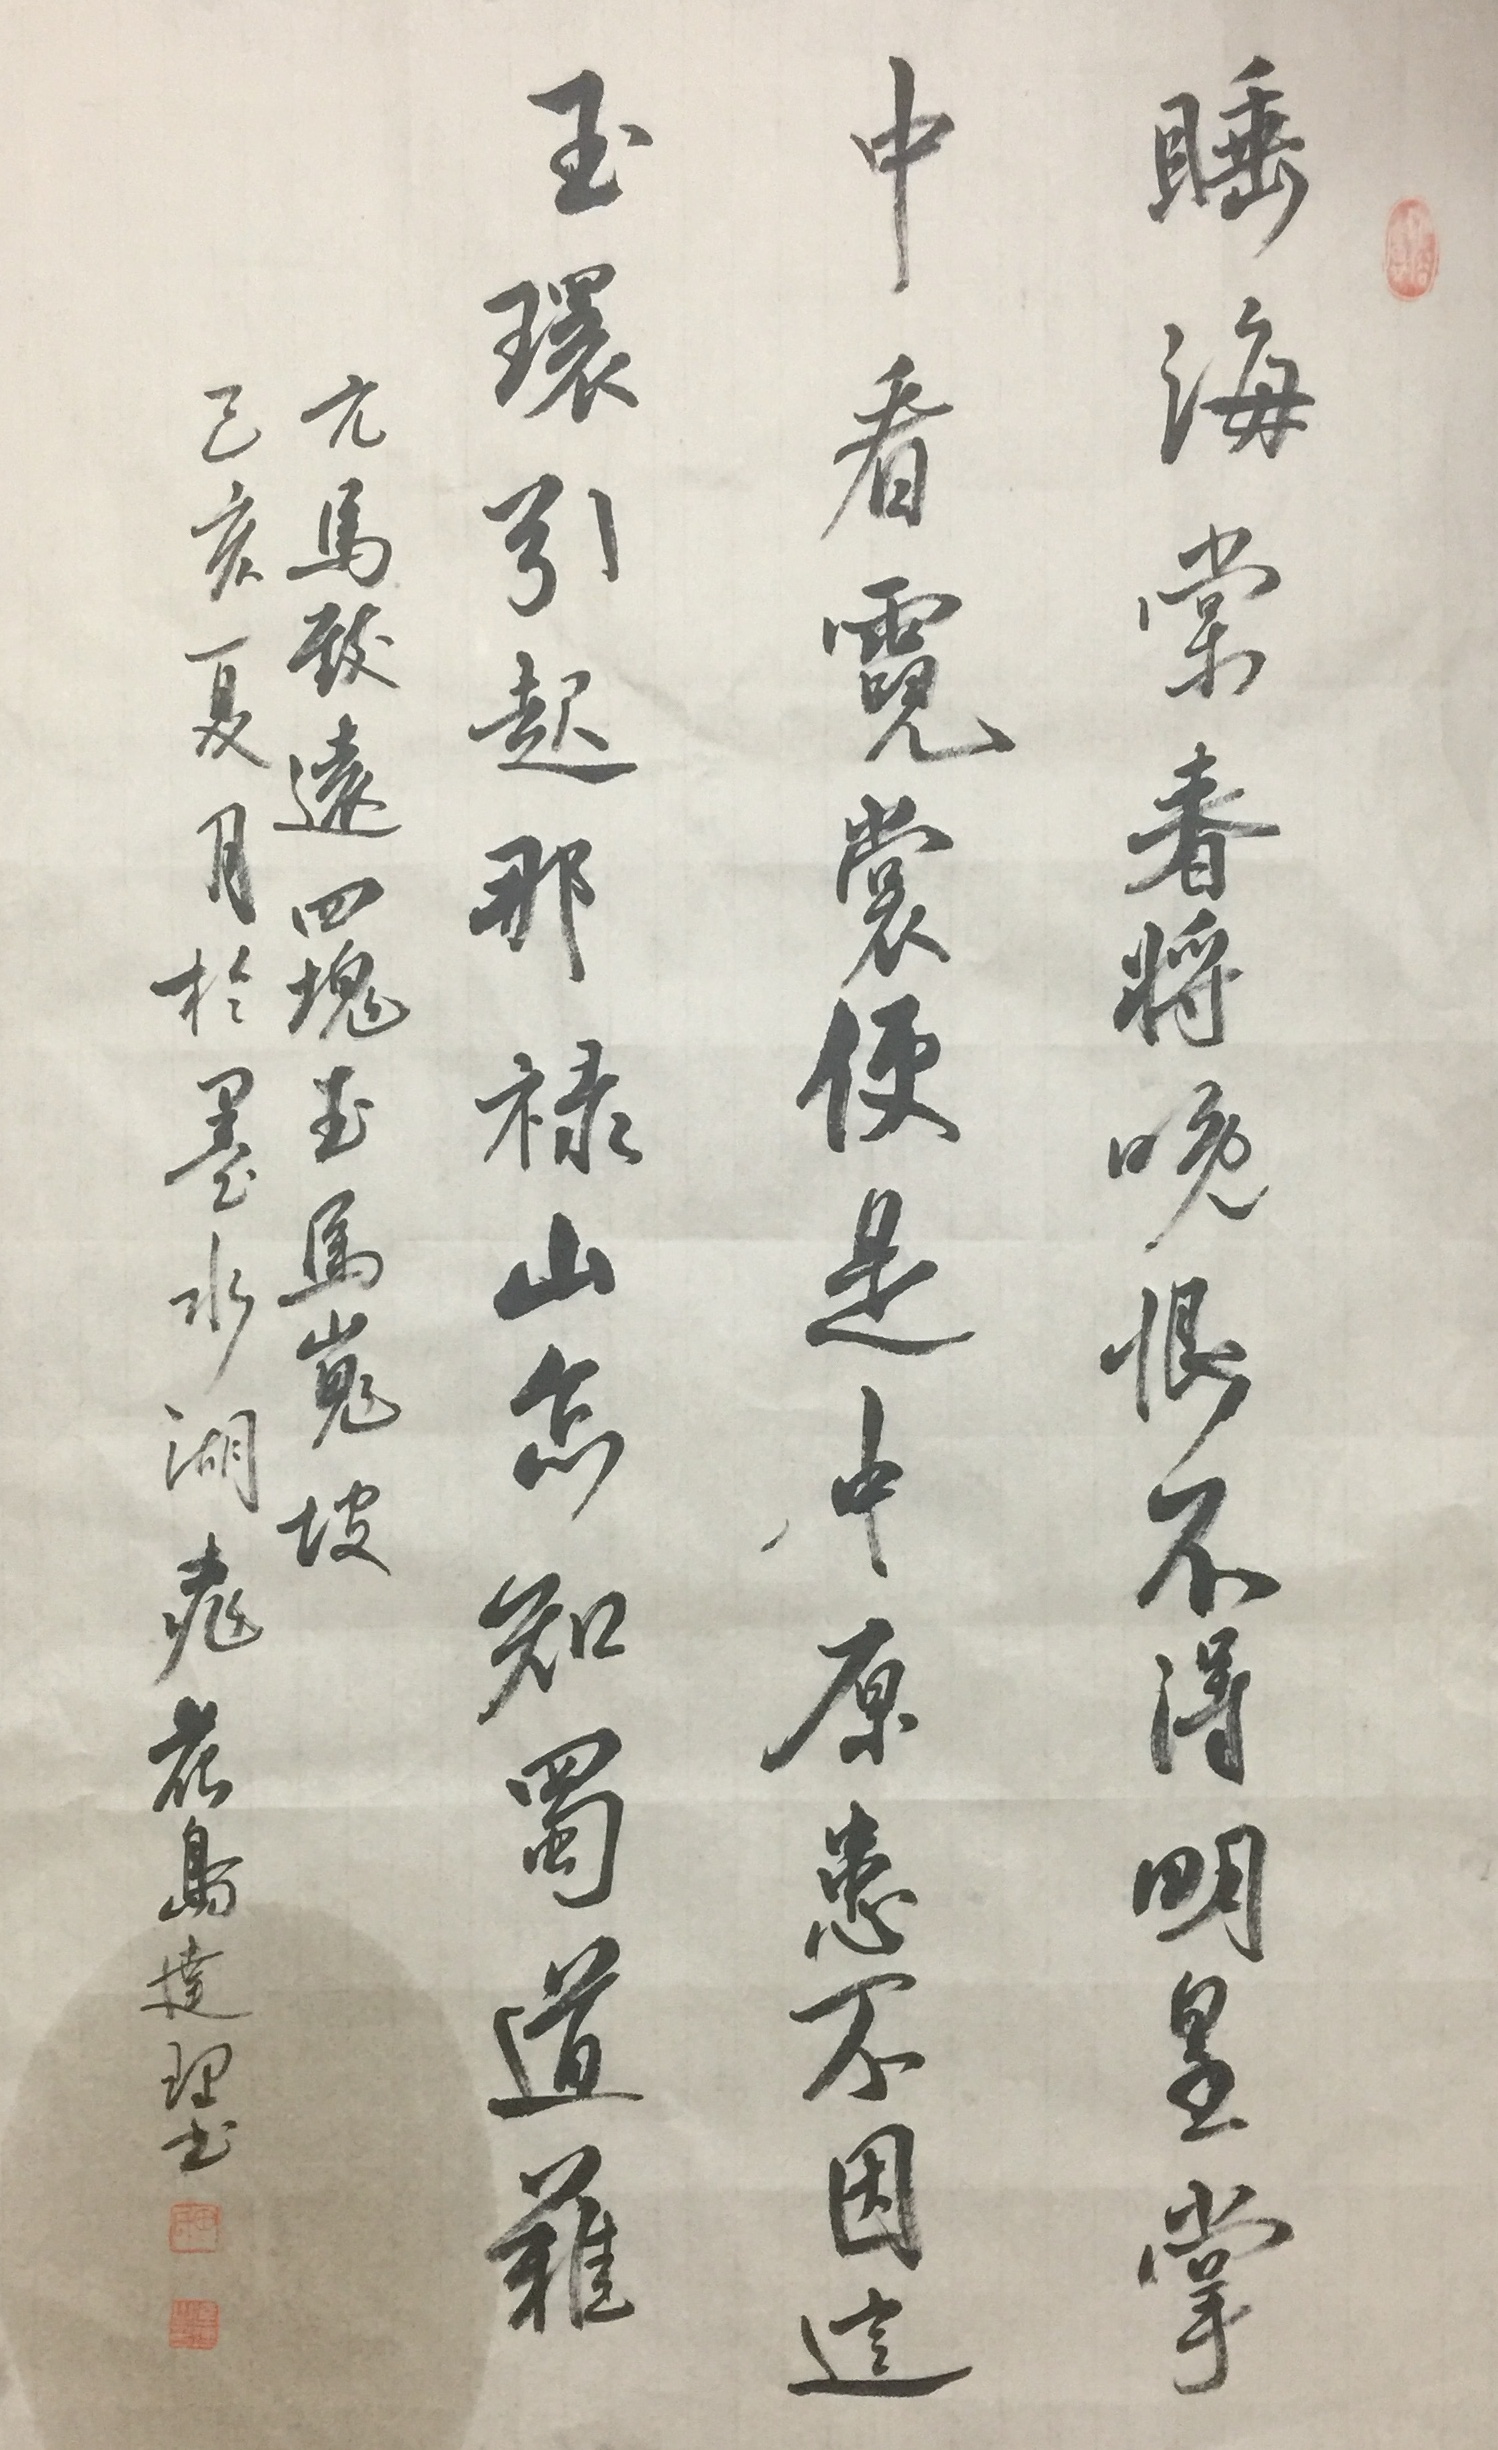 睡海棠春將晚恨不得明皇掌
中看霓裳便是中原患不因這
玉環引起那禄山怎知蜀道難
元馬致遠四塊玉馬嵬坡
己亥夏月於墨水湖